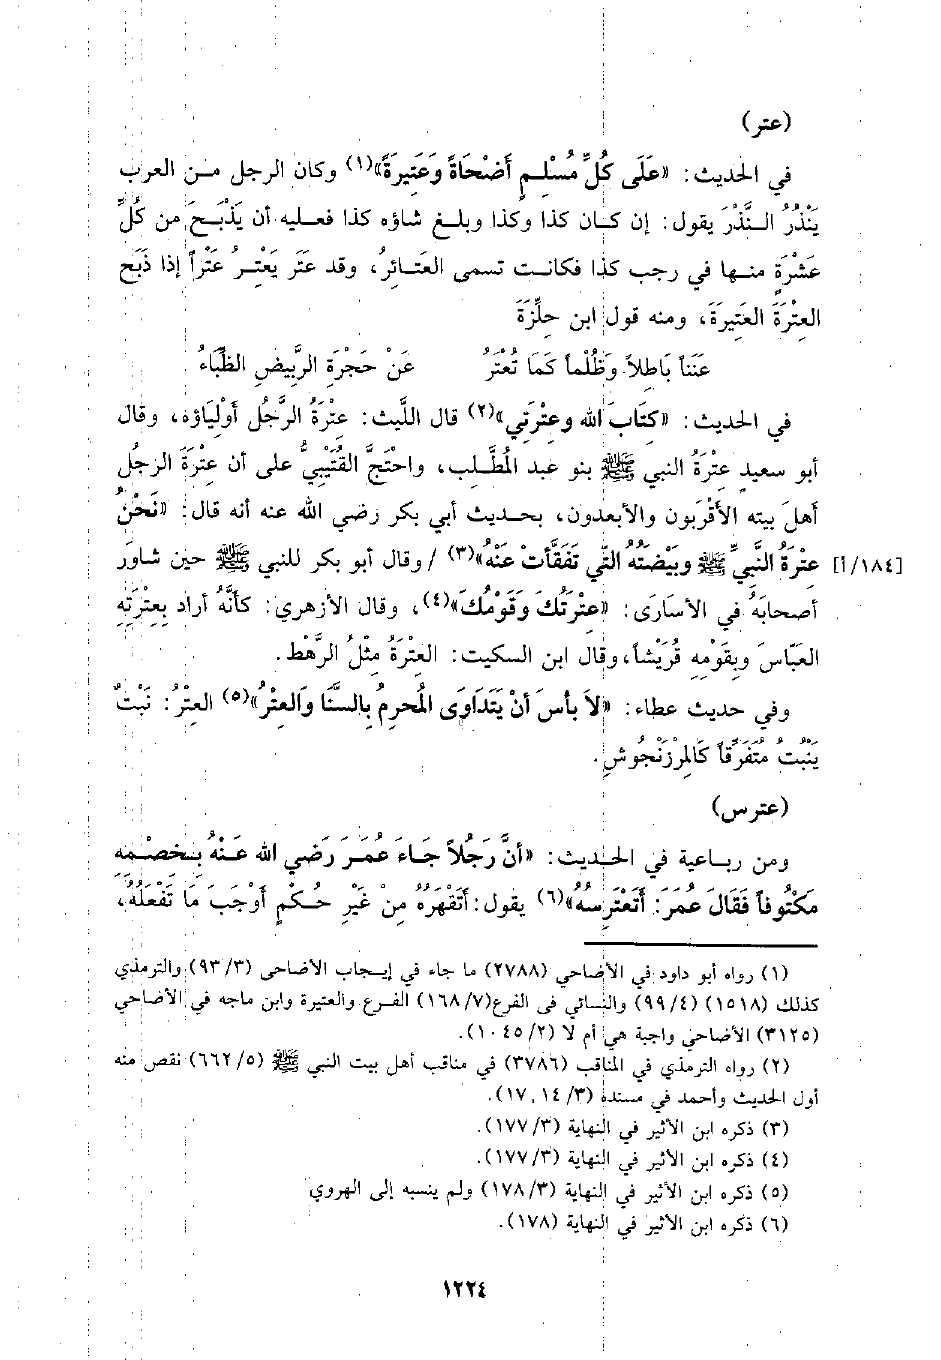 (عتر)
في الحديث: «عَلَى كُلِّ مُسْلِمٍ أَضْحَاةً وَعَتِيرَةً»(١) وكان الرجل من العرب
يَنْذُرُ النَّذْرَ يقول: إن كان كذا وكذا وبلغ شاؤه كذا فعليه أن يَذْبَحَ من كُلِّ
عَشْرَةٍ منها في رجب كذا فكانت تسمى العَتَائِرُ، وقد عَتَر يَعْتِرُ عَتْراً إذا ذَبَح
العِتْرَةَ العَتِيرَةَ، ومنه قول ابن حلِّزَةَ
عَنَناً بَاطِلاً وَظُلْماً كَمَا تُعْتَرُ عَنْ حَجْرَةِ الرَّبِيضِ الظِّبَاءُ
في الحديث: «كِتَابَ الله وعِتْرَتِي»(٢) قال اللَّيث: عِتْرَةُ الرَّجُل أَوْلِيَاؤه، وقال
أبو سعيدٍ عِتْرَةُ النبي ﷺ بنو عبد المُطَّلِب، واحْتَجَّ القُتَيْبِيُّ على أن عِتْرَةَ الرجل
أهلَ بيته الأَقْرَبون والأبعدون، بحديث أبي بكر رضي الله عنه أنه قال: «نَحْنُ
عِتْرَةُ النَّبِيِّ ﷺ وبَيْضَتُهُ التَّي تَفَقَّأَتْ عَنْهُ»(٣) / وقال أبو بكر للنبي ﷺ حين شاوَر [١٨٤/أ]
أصحابَهُ في الأسَارَى: «عِتْرَتكَ وَقَوْمُكَ»(٤)، وقال الأزهري: كأنَّهُ أراد بِعِتْرَتِهِ
العَبَّاسَ وبِقَوْمِهِ قُرَيْشاً، وقال ابن السكيت: العِتْرَةُ مِثْلُ الرَّهْط.
وفي حديث عطاء: «لاَ بأسَ أنْ يَتَدَاوَى المُحرِمُ بِالسَّنَا وَالعِتْرُ»(٥) العِتْرُ: نَبْتٌ
يَنْبُتُ مُتَفَرِّقاً كَالمَرْزَنْجُوشِ.
(عترس)
ومن رباعية في الحديث: «أنَّ رَجُلاً جَاءَ عُمَرَ رَضي الله عَنْهُ بِخَصْمِهِ
مَكْتُوفاً فَقَالَ عُمَرَ: أَتُعَتْرِسُهُ»(٦) يقول: أتَقْهَرُهُ مِنْ غَيْرِ حُكْمٍ أوْجَبَ مَا تَفْعَلُهُ،
(١) رواه أبو داود في الأضاحي (٢٧٨٨) ما جاء في إيجاب الأضاحي (٩٣/٣) والترمذي
كذلك (١٥١٨) (٩٩/٤) والنسائي فى الفرع (١٦٨/٧) الفرع والعتيرة وابن ماجه في الأضاحي
(٣١٢٥) الأضاحي واجبة هي أم لا (١٠٤٥/٢).
(٢) رواه الترمذي في المناقب (٣٧٨٦) في مناقب أهل بيت النبي ﷺ (٦٦٢/٥) نقص منه
أول الحديث وأحمد في مسنده (١٧,١٤/٣).
(٣) ذكره ابن الأثير في النهاية (١٧٧/٣).
(٤) ذكره ابن الأثير في النهاية (١٧٧/٣).
(٥) ذكره ابن الأثير في النهاية (١٧٨/٣) ولم ينسبه إلى الهروي
(٦) ذكره ابن الأثير في النهاية (١٧٨).
١٢٢٤